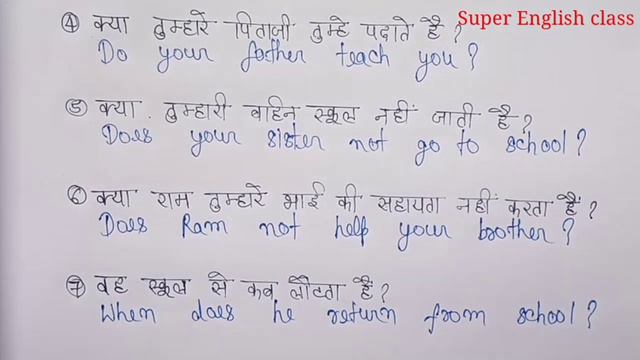 Super English class
④ क्या तुम्हारे पिताजी तुम्हे पढाते है ?
Do your father teach you ?
⑤ क्या . तुम्हारी वाहिन स्कूल नहीं जाती है ?
Does your sister not go to school ?
⑥ क्या राम तुम्हारे भाई की सहायता नहीं करता हैं ?
Does Ram not help your brother ?
⑦ वह स्कूल से कब लौटता है ?
When does he return from school ?